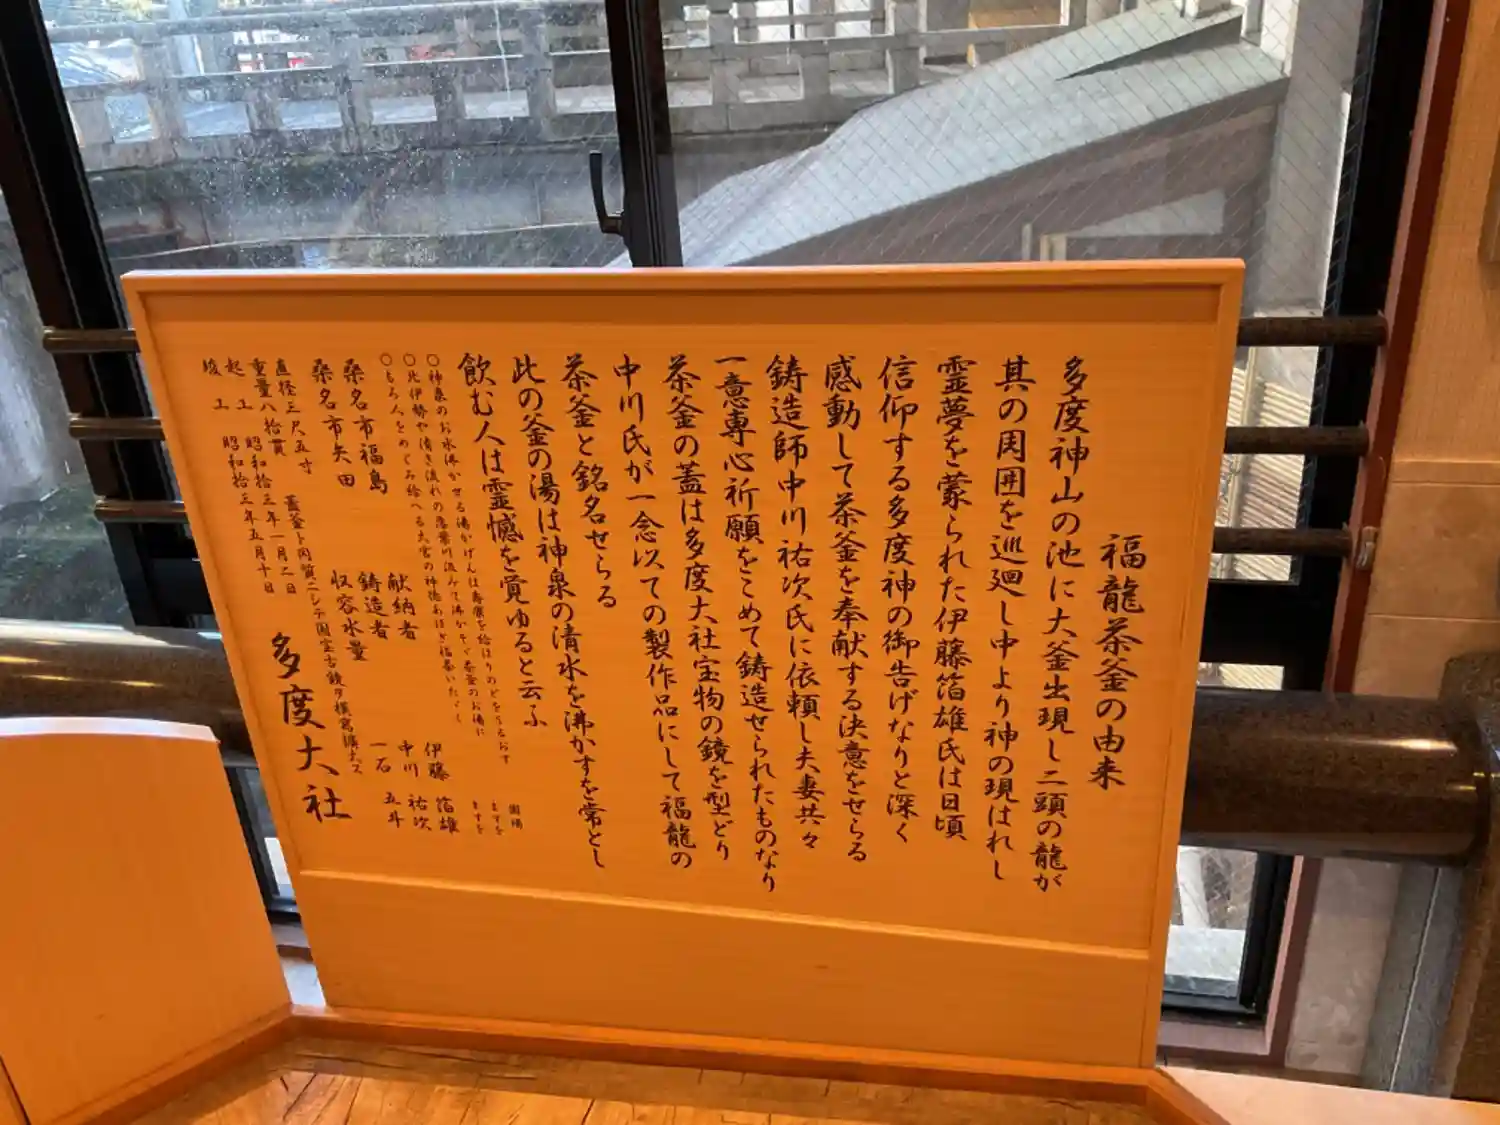 福龍茶釜の由来
多度神山の池に大釜出現し二頭の龍が
其の周囲を巡廻し中より神の現はれし
霊夢を蒙られた伊藤箔雄氏は日頃
信仰する多度神の御告げなりと深く
感動して茶釜を奉献する決意をせらる
鋳造師中川祐次氏に依頼し夫妻共々
一意専心祈願をこめて鋳造せられたものなり
茶釜の蓋は多度大社宝物の鏡を型どり
中川氏が一念以ての製作品にして福龍の
茶釜と銘名せらる
此の釜の湯は神泉の清水を沸かすを常とし
飲む人は霊憾を覚ゆると云ふ
○神泉のお水沸かせる湯かげんは
○此伊勢や清き流れの落葉川汲みて沸かせし茶釜のお湯に
○もろ人をめぐみ給へる大宮の神徳あほぎ福茶いたゞく
桑名市福島 献納者 伊藤 箔雄
桑名市矢田 鋳造者 中川 祐次
収容水量 一石 五斗
直径三尺五寸
重量八拾貫
起工 昭和拾三年一月二日
竣工 昭和拾三年五月十日
多度大社